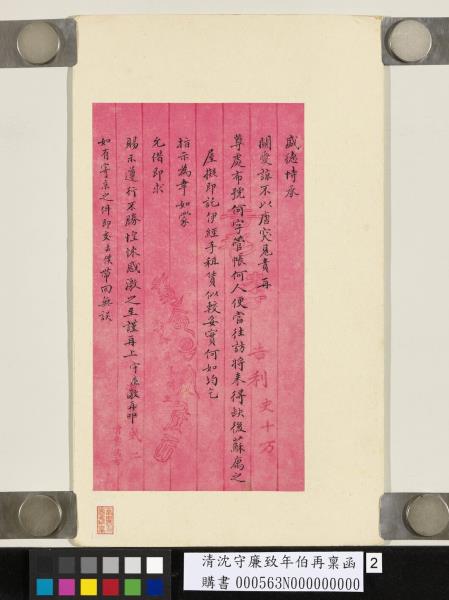 盛德恃承
關愛諒不以唐突見責再
尊處布號何字管帳何人便當往訪將來得缺後蘇寓之
屋擬即託伊經手租賃似較妥實何如均乞
指示為幸如蒙
允借即求
賜示遵行不勝惶悚感激之至謹再上守廉敬再叩
如有寄京之件即交去僕帶回無誤
吉利
史十万
清沈守廉致年伯再稟函
購書 000563N000000000
2